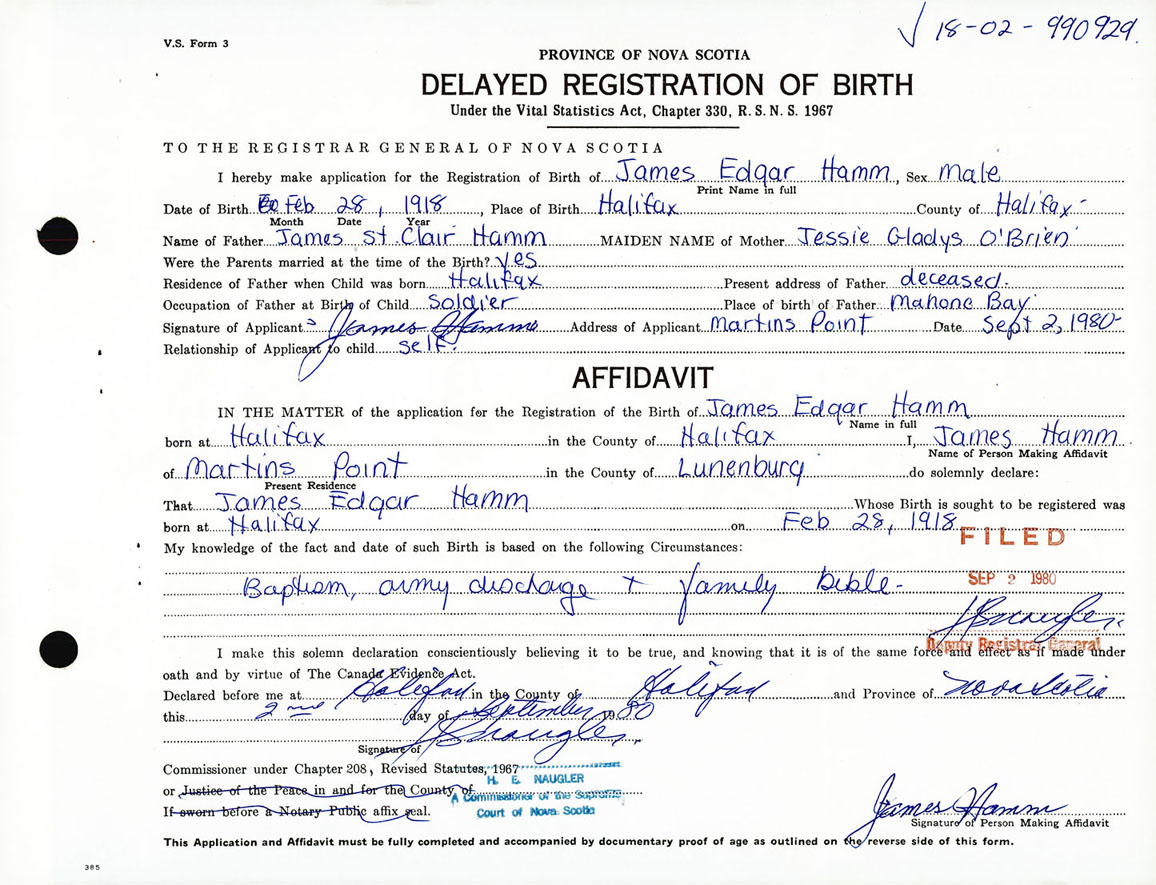 V.S. Form 3
✓ 18-02-990929.
PROVINCE OF NOVA SCOTIA
DELAYED REGISTRATION OF BIRTH
Under the Vital Statistics Act, Chapter 330, R.S.N.S. 1967
TO THE REGISTRAR GENERAL OF NOVA SCOTIA
I hereby make application for the Registration of Birth of James Edgar Hamm, Sex Male
Print Name in full
Date of Birth Feb 28, 1918, Place of Birth Halifax County of Halifax
Month Date Year
Name of Father James St. Clair Hamm MAIDEN NAME of Mother Jessie Gladys O'Brien
Were the Parents married at the time of the Birth? Yes
Residence of Father when Child was born Halifax Present address of Father deceased.
Occupation of Father at Birth of Child Soldier Place of birth of Father Mahone Bay
Signature of Applicant James Hamm Address of Applicant Martins Point Date Sept 2, 1980
Relationship of Applicant to child self.
AFFIDAVIT
IN THE MATTER of the application for the Registration of the Birth of James Edgar Hamm
Name in full
born at Halifax in the County of Halifax I, James Hamm
Name of Person Making Affidavit
of Martins Point in the County of Lunenburg do solemnly declare:
Present Residence
That James Edgar Hamm Whose Birth is sought to be registered was
born at Halifax on Feb 28, 1918
FILED
My knowledge of the fact and date of such Birth is based on the following Circumstances:
Baptism, army discharge + family bible-
SEP 2 1980
HENaugler
Deputy Registrar General
I make this solean declaration conscientiously believing it to be true, and knowing that it is of the same force and effect as if made under
oath and by virtue of The Canada Evidence Act.
Declared before me at Halifax in the County of Halifax and Province of Nova Scotia
this 2nd day of September, 1980
HENaugler
Signature of
Commissioner under Chapter 208, Revised Statutes, 1967
H. E. NAUGLER
or Justice of the Peace in and for the County of
A Commissioner of the Supreme
If sworn before a Notary Public affix seal.
Court of Nova Scotia
James Hamm
Signature of Person Making Affidavit
This Application and Affidavit must be fully completed and accompanied by documentary proof of age as outlined on the reverse side of this form.
385